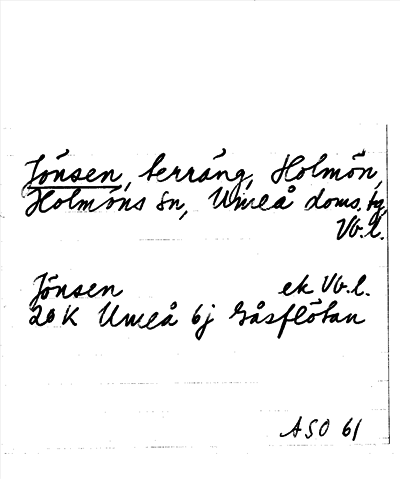 Jönsen, terräng, Holmön,
Holmöns sn, Umeå doms. tg,
Vb. l.
Jönsen ek Vb. l.
20 K Umeå 6j Gåsflötan
ASO 61